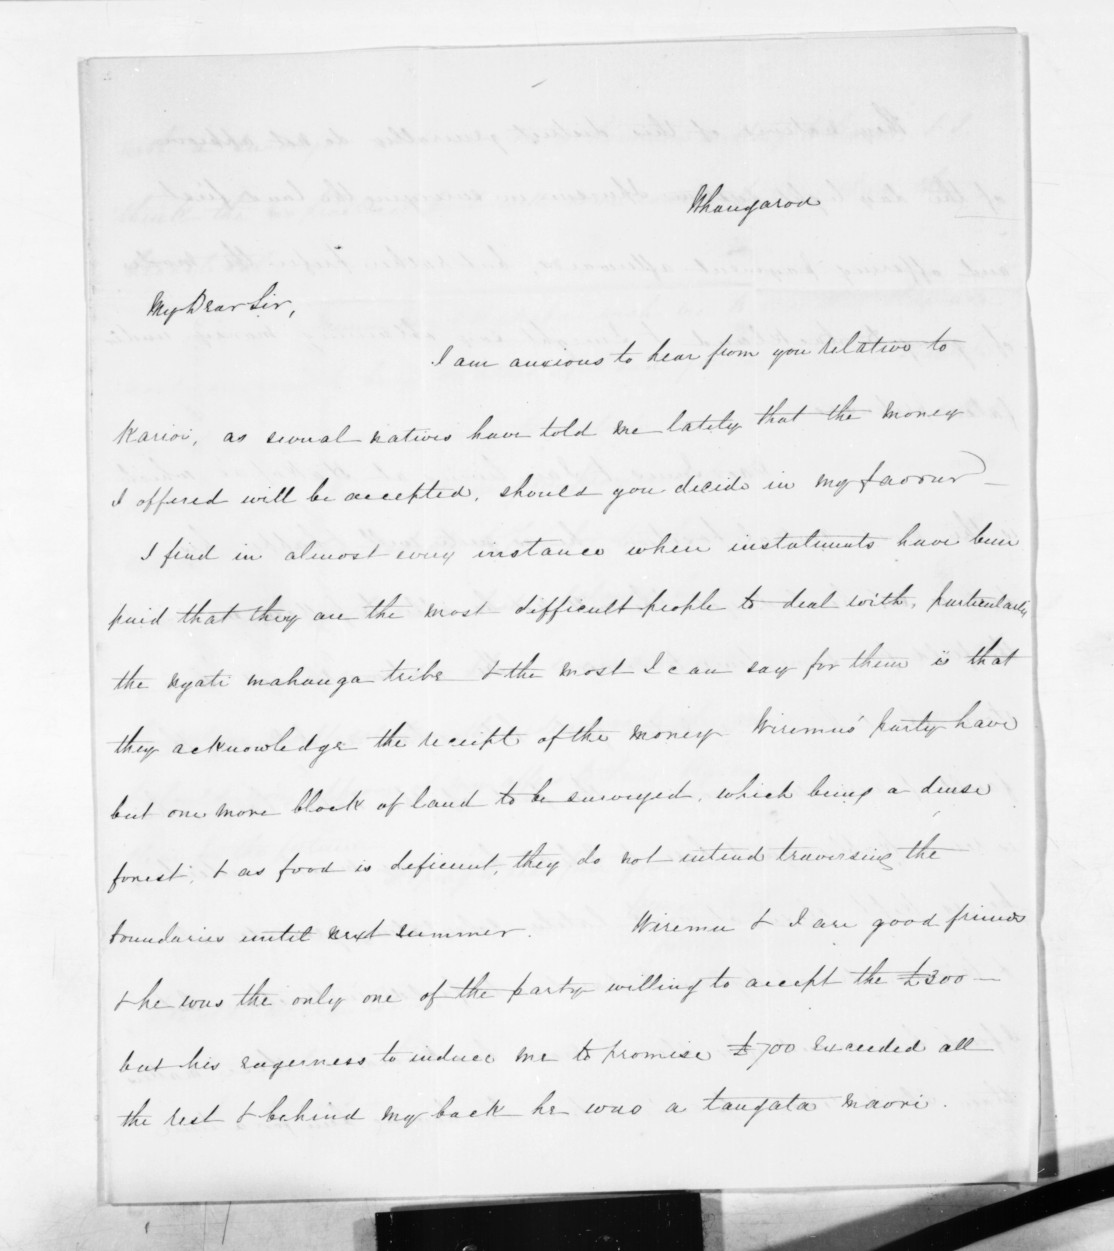 Whangaroa
My Dear Sir,
I am anxious to hear from you relative to
Karioi, as several natives have told me lately that the money
I offered will be accepted, should you decide in my favour –
I find in almost every instance when instalments have been
paid that they are the most difficult people to deal with, particularly
the ngati mahanga tribe & the most I can say for them is that
they acknowledge the receipt of the money Wiremu's party have
but one more block of land to be surveyed, which being a dense
forest, & as food is deficient, they do not intend traversing the
boundaries until next summer. Wiremu & I are good friends
& he was the only one of the party willing to accept the £300 –
but his eagerness to induce me to promise £700 exceeded all
the rest & behind my back he was a tangata maori.